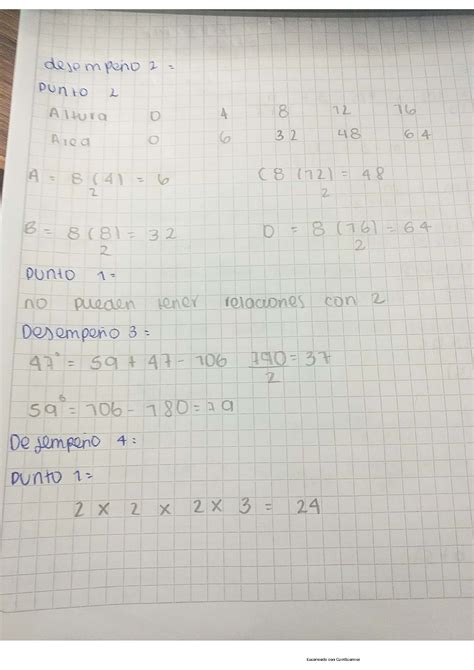 desempeño 2 =
punto 2
Altura 0 4 8 12 16
Area 0 6 32 48 64
A = 8 (4) = 6 (8 (12) = 48
2 2
B = 8 (8) = 32 D = 8 (16) = 64
2 2
punto 1=
no pueden tener relaciones con 2
Desempeño 3 =
47° = 59 + 47 - 106 190 = 37
2
59° = 106 - 180 = 79
Desempeño 4 =
punto 1=
2 x 2 x 2 x 3 = 24
Escaneado con CamScanner